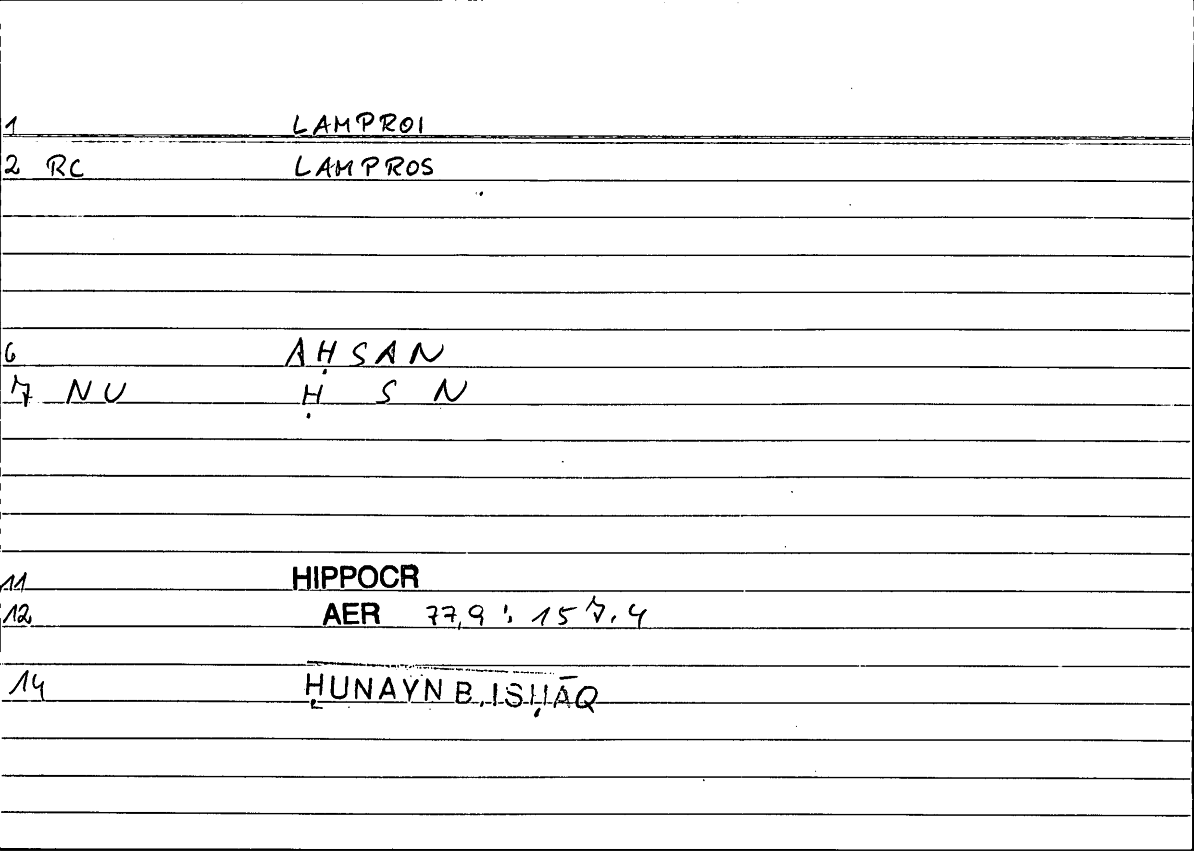 1 LAMPROI
2 RC LAMPROS
6 AḤSAN
7 NU Ḥ S N
11 HIPPOCR
12 AER 77,9 : 157.4
14 ḤUNAYN B. ISḤĀQ